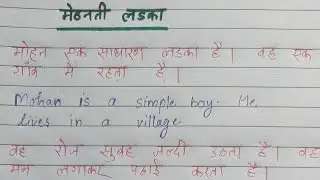 मेहनती लडका
मोहन एक साधारण लडका है। वह एक
गाँव में रहता है।
Mohan is a simple boy. He
lives in a village
वह रोज सुबह जल्दी उठता है। वह
मन लगाकर पढाई करता है।